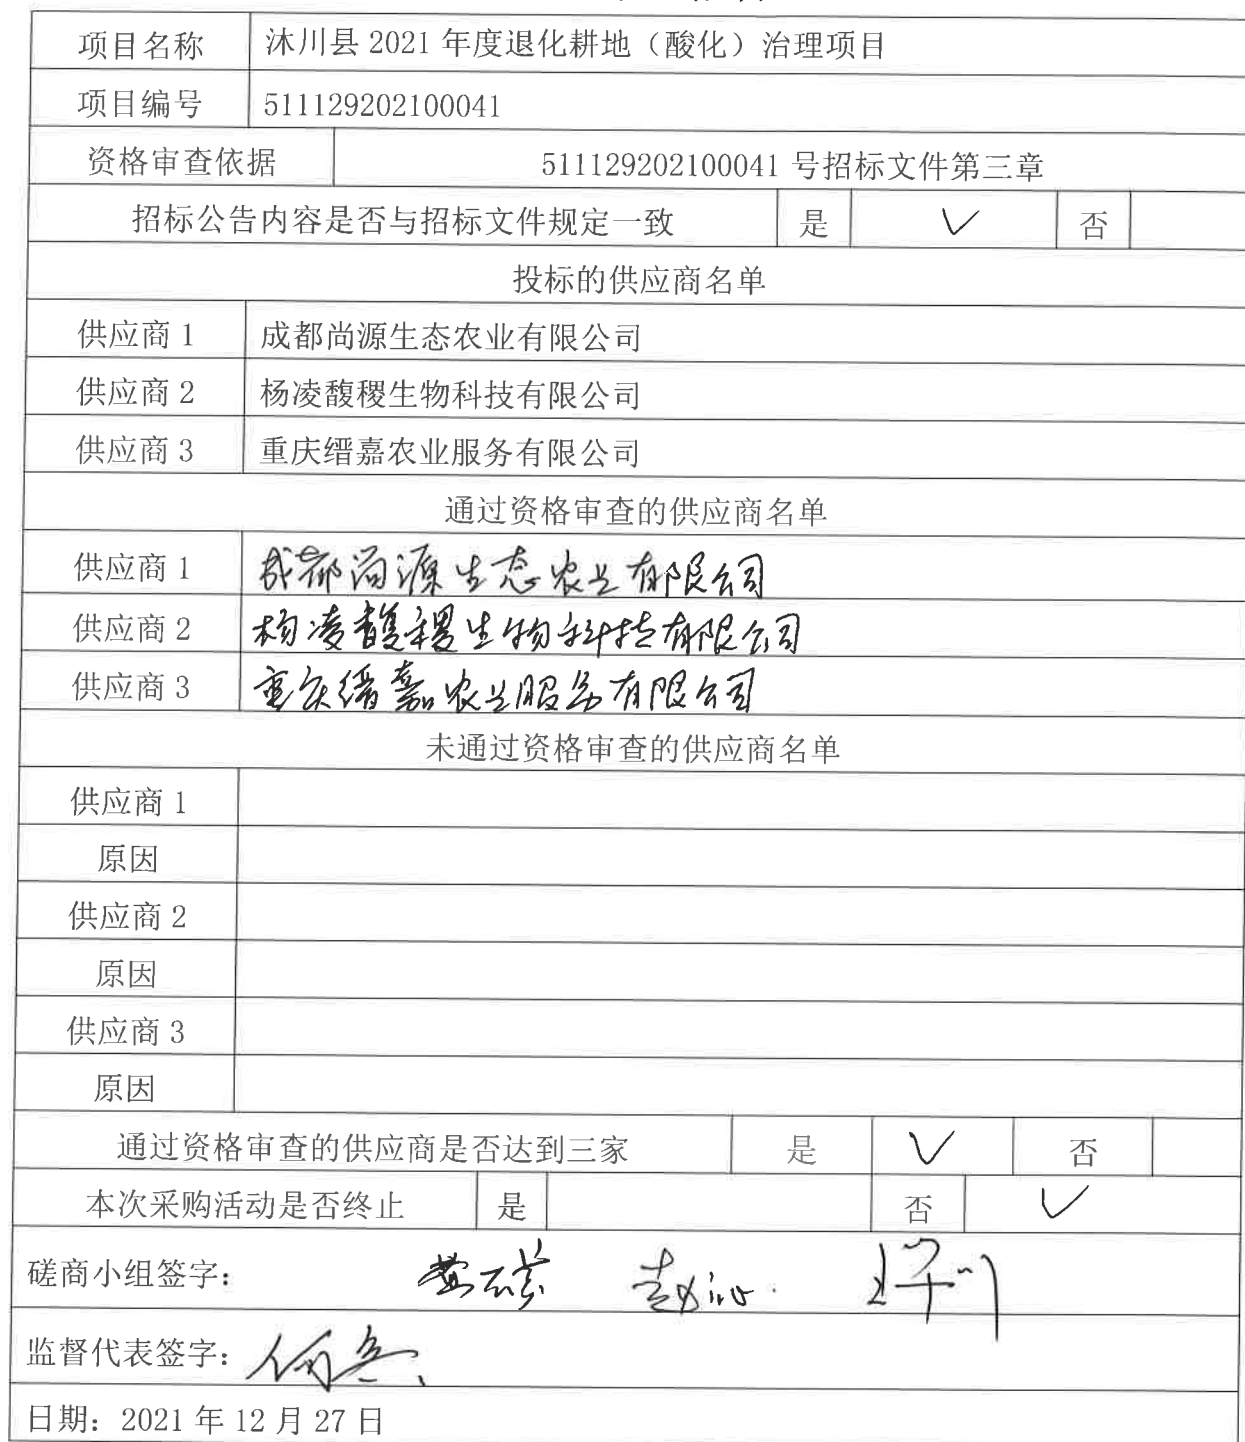 项目名称 沐川县 2021 年度退化耕地（酸化）治理项目
项目编号 511129202100041
资格审查依据 511129202100041 号招标文件第三章
招标公告内容是否与招标文件规定一致 是 ✓ 否
投标的供应商名单
供应商 1 成都尚源生态农业有限公司
供应商 2 杨凌馥稷生物科技有限公司
供应商 3 重庆缙嘉农业服务有限公司
通过资格审查的供应商名单
供应商 1 成都尚源生态农业有限公司
供应商 2 杨凌馥稷生物科技有限公司
供应商 3 重庆缙嘉农业服务有限公司
未通过资格审查的供应商名单
供应商 1
原因
供应商 2
原因
供应商 3
原因
通过资格审查的供应商是否达到三家 是 ✓ 否
本次采购活动是否终止 是 否 ✓
磋商小组签字：
监督代表签字：
日期：2021 年 12 月 27 日